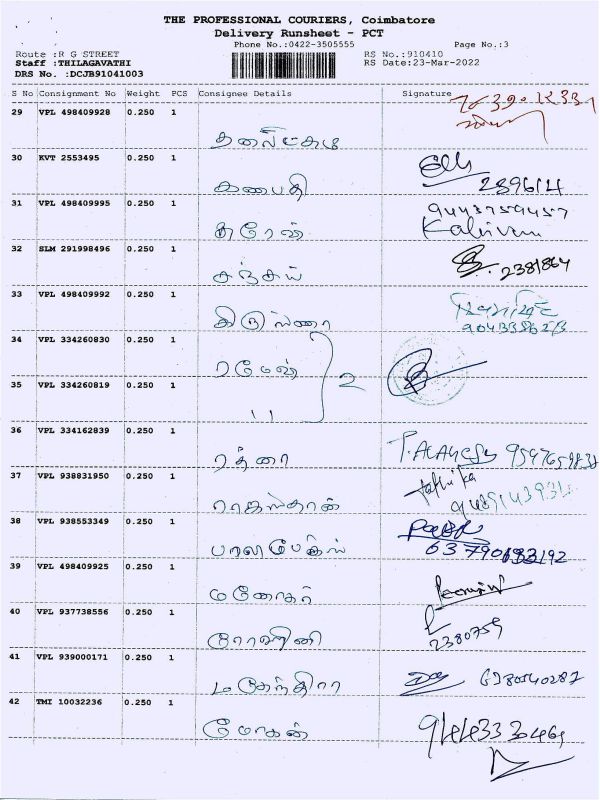 THE PROFESSIONAL COURIERS, Coimbatore
Delivery Runsheet - PCT
Phone No.:0422-3505555 Page No.:3
Route :R G STREET RS No.:910410
Staff :THILAGAVATHI RS Date:23-Mar-2022
DRS No. :DCJB91041003
S No Consignment No Weight PCS Consignee Details Signature
29 VPL 498409928 0.250 1
30 KVT 2553495 0.250 1
கணபதி
239614
31 VPL 498409995 0.250 1 9443759457
ஹரேஷ்
32 SLM 291998496 0.250 1
சஞ்சய் 2381864
33 VPL 498409992 0.250 1
கிருஷ்ணா
34 VPL 334260830 0.250 1
ரமேஷ் 2
35 VPL 334260819 0.250 1
"
36 VPL 334162839 0.250 1
ரத்னா
37 VPL 938831950 0.250 1
ராஜஸ்தான்
38 VPL 938553349 0.250 1
39 VPL 498409925 0.250 1
மனோகர்
40 VPL 937738556 0.250 1
ரோஹிணி 2380759
41 VPL 939000171 0.250 1
மகேந்திரா
42 TMI 10032236 0.250 1
மோகன்